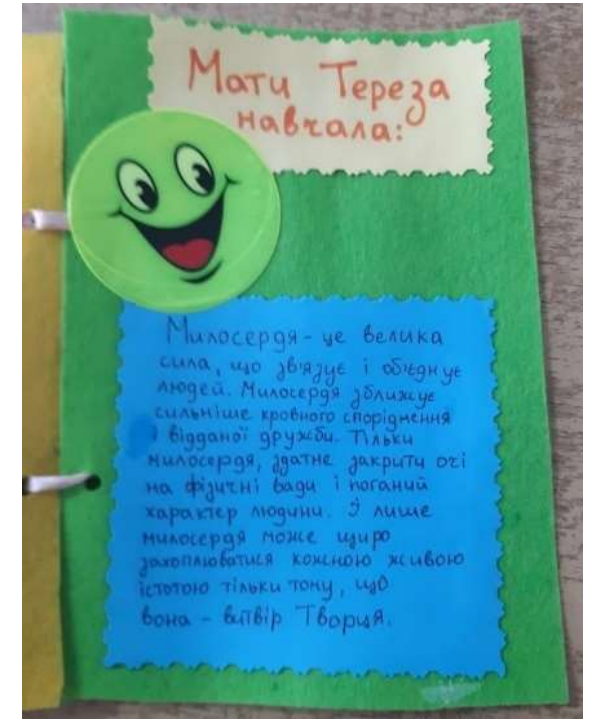 Мати Тереза
навчала:
Милосердя - це велика
сила, що зв'язує і об'єднує
людей. Милосердя зближує
сильніше кровного споріднення
і відданої дружби. Тільки
милосердя, здатне закрити очі
на фізичні вади і поганий
характер людини. Й лише
милосердя може щиро
захоплюватися кожною живою
істотою тільки тому, що
вона - витвір Творця.